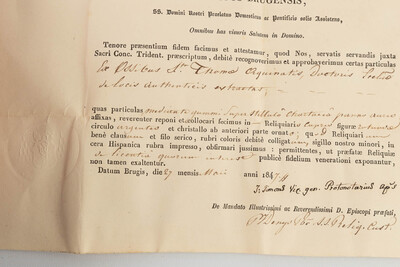 BRUGENSIS,
SS. Domini Nostri Praelatus Domesticus ac Pontificio solio Assistens,
Omnibus has visuris Salutem in Domino.
Tenore præsentium fidem facimus et attestamur, quod Nos, servatis servandis juxta
Sacri Conc. Trident. præscriptum, debitè recognoverimus et approbaverimus certas particulas
Ex Ossibus Sti Thomæ Aquinatis, Doctoris Eccliæ
de Locis Authenticis extractas,
quas particulas mediante gummi super stellulâ chartaceâ
affixas, reverenter reponi et collocari fecimus in Reliquiario cupreo figuræ
circulo argenteo et christallo ab anteriori parte ornato, quod Reliquiarium
benè clausum et filo serico, rubri coloris debitè colligatum, sigillo nostro minori, in
cera Hispanica rubra impresso, obfirmari jussimus: permittentes, ut præfatæ Reliquiæ
de licentia quorum interest publicè fidelium venerationi exponantur,
non tamen exaltentur.
Datum Brugis, die 27 mensis Maii anni 184
Simons Vic. gen. Protonotarius Aplis
De Mandato Illustrissimi ac Reverendissimi D. Episcopi præfati,
SS. Reliq. Cust.